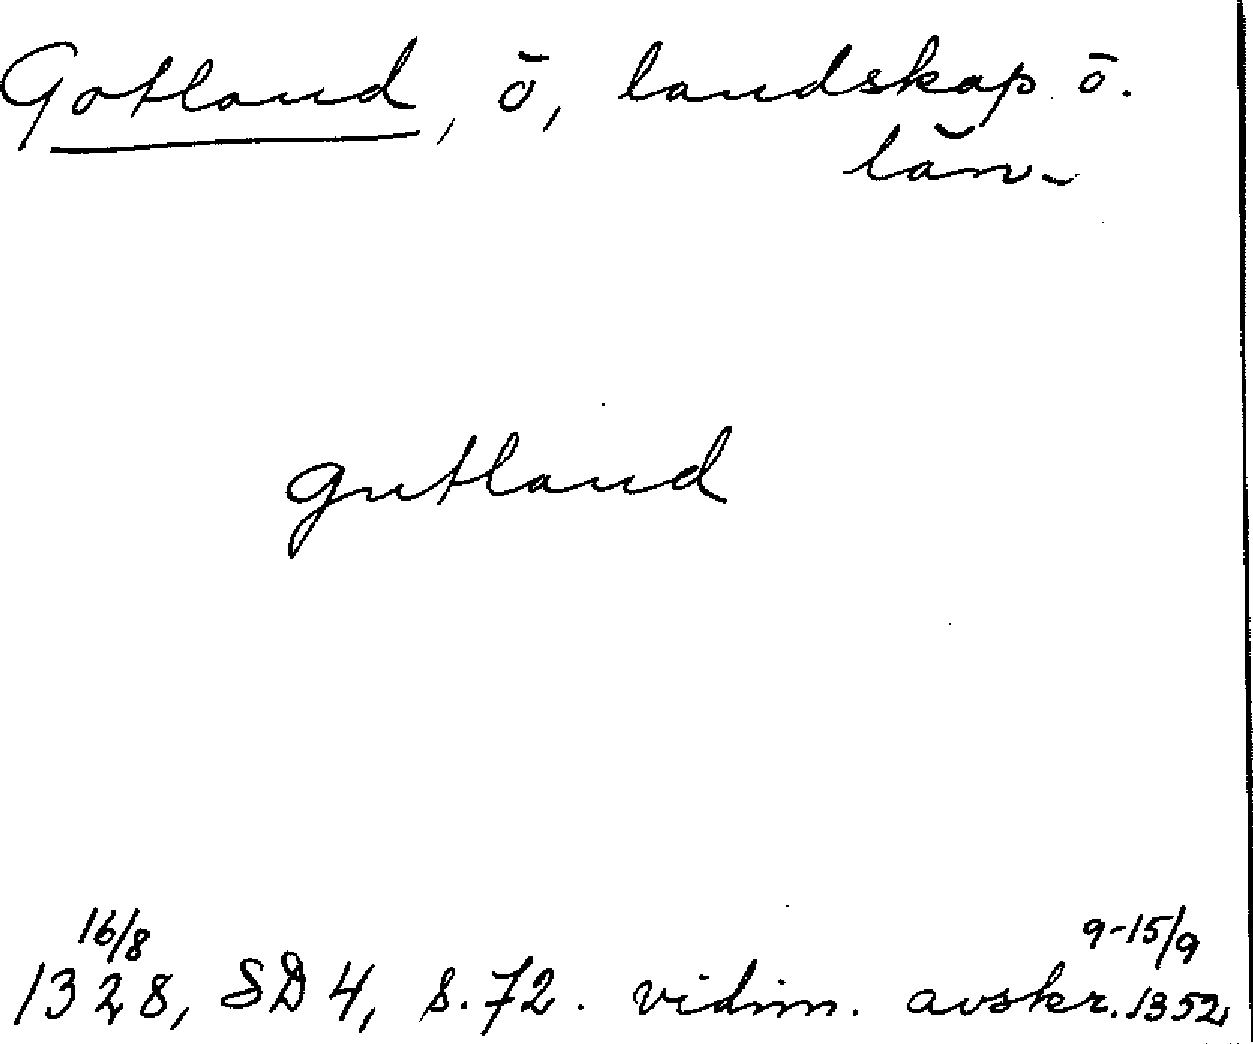 Gotland, ö, landskap o.
län
gutland
16/8 9-15/9
1328, SD 4, s. 72. vidim. avskr. 1352